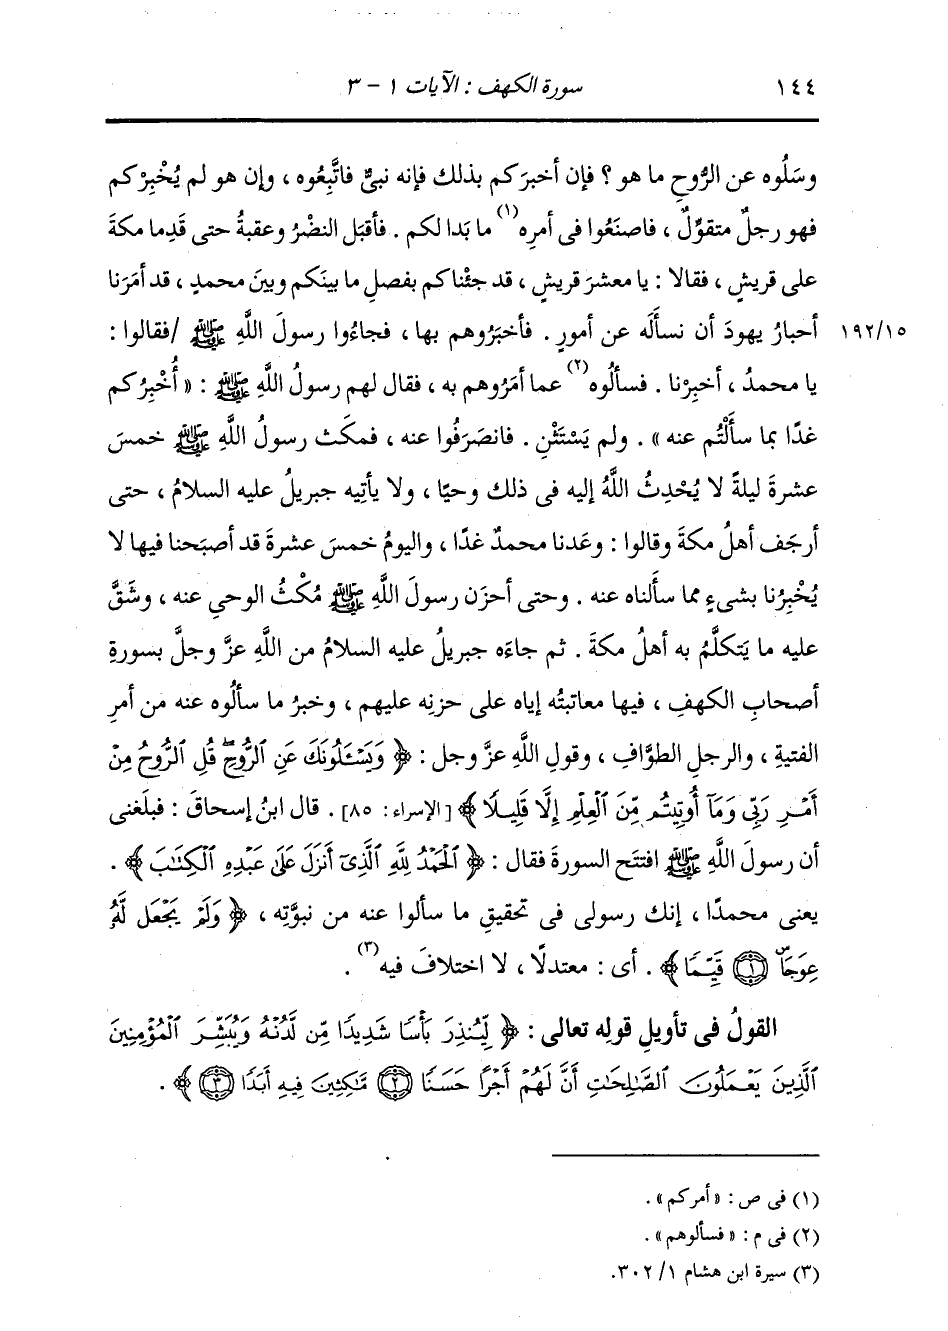 ١٤٤ سورة الكهف : الآيات ١ - ٣
وسَلُوه عن الرُّوحِ ما هو ؟ فإن أخبرَكم بذلك فإنه نبىٌّ فاتَّبِعُوه ، وإن هو لم يُخْبِرْكم
فهو رجلٌ متقوِّلٌ ، فاصنَعُوا فى أمرِه(١) ما بَدا لكم . فأقبَل النضْرُ وعقبةُ حتى قَدِما مكةَ
على قريشٍ ، فقالا : يا معشرَ قريشٍ ، قد جئْناكم بفصلِ ما بينَكم وبينَ محمدٍ ، قد أمَرَنا
أحبارُ يهودَ أن نسألَه عن أمورٍ . فأخبَرُوهم بها ، فجاءُوا رسولَ اللَّهِ ﷺ /فقالوا : ١٩٢/١٥
يا محمدُ ، أخبِرْنا . فسألُوه(٢) عما أمَرُوهم به ، فقال لهم رسولُ اللَّهِ ﷺ : « أُخْبِرُكم
غدًا بما سأَلْتُم عنه » . ولم يَسْتَثْنِ . فانصَرَفُوا عنه ، فمكَث رسولُ اللَّهِ ﷺ خمسَ
عشرةَ ليلةً لا يُحْدِثُ اللَّهُ إليه فى ذلك وحيًا ، ولا يأتِيه جبريلُ عليه السلامُ ، حتى
أرجَف أهلُ مكةَ وقالوا : وعَدنا محمدٌ غدًا ، واليومُ خمسَ عشرةَ قد أصبَحنا فيها لا
يُخْبِرُنا بشىءٍ مما سألناه عنه . وحتى أحزَن رسولَ اللَّهِ ﷺ مُكْثُ الوحىِ عنه ، وشَقَّ
عليه ما يَتكلَّمُ به أهلُ مكةَ . ثم جاءَه جبريلُ عليه السلامُ من اللَّهِ عزَّ وجلَّ بسورةِ
أصحابِ الكهفِ ، فيها معاتبتُه إياه على حزنِه عليهم ، وخبرُ ما سألُوه عنه من أمرِ
الفتيةِ ، والرجلِ الطوَّافِ ، وقولِ اللَّهِ عزَّ وجل : ﴿ وَيَسْـَٔلُونَكَ عَنِ ٱلرُّوحِۖ قُلِ ٱلرُّوحُ مِنْ
أَمْرِ رَبِّى وَمَآ أُوتِيتُم مِّنَ ٱلْعِلْمِ إِلَّا قَلِيلًا ﴾ [الإسراء: ٨٥] . قال ابنُ إسحاقَ : فبلَغنى
أن رسولَ اللَّهِ ﷺ افتتَح السورةَ فقال : ﴿ ٱلْحَمْدُ لِلَّهِ ٱلَّذِىٓ أَنزَلَ عَلَىٰ عَبْدِهِ ٱلْكِتَٰبَ ﴾ .
يعنى محمدًا ، إنك رسولى فى تحقيقِ ما سألوا عنه من نبوَّتِه ، ﴿ وَلَمْ يَجْعَل لَّهُۥ
عِوَجَاۜ ۝١ قَيِّمًا ﴾ . أى : معتدلًا ، لا اختلافَ فيه(٣) .
القولُ فى تأويلِ قولِه تعالى : ﴿ لِّيُنذِرَ بَأْسًا شَدِيدًا مِّن لَّدُنْهُ وَيُبَشِّرَ ٱلْمُؤْمِنِينَ
ٱلَّذِينَ يَعْمَلُونَ ٱلصَّٰلِحَٰتِ أَنَّ لَهُمْ أَجْرًا حَسَنًا ۝٢ مَّٰكِثِينَ فِيهِ أَبَدًا ۝٣ ﴾ .
(١) فى ص : « أمركم » .
(٢) فى م : « فسألوهم » .
(٣) سيرة ابن هشام ١/ ٣٠٢.